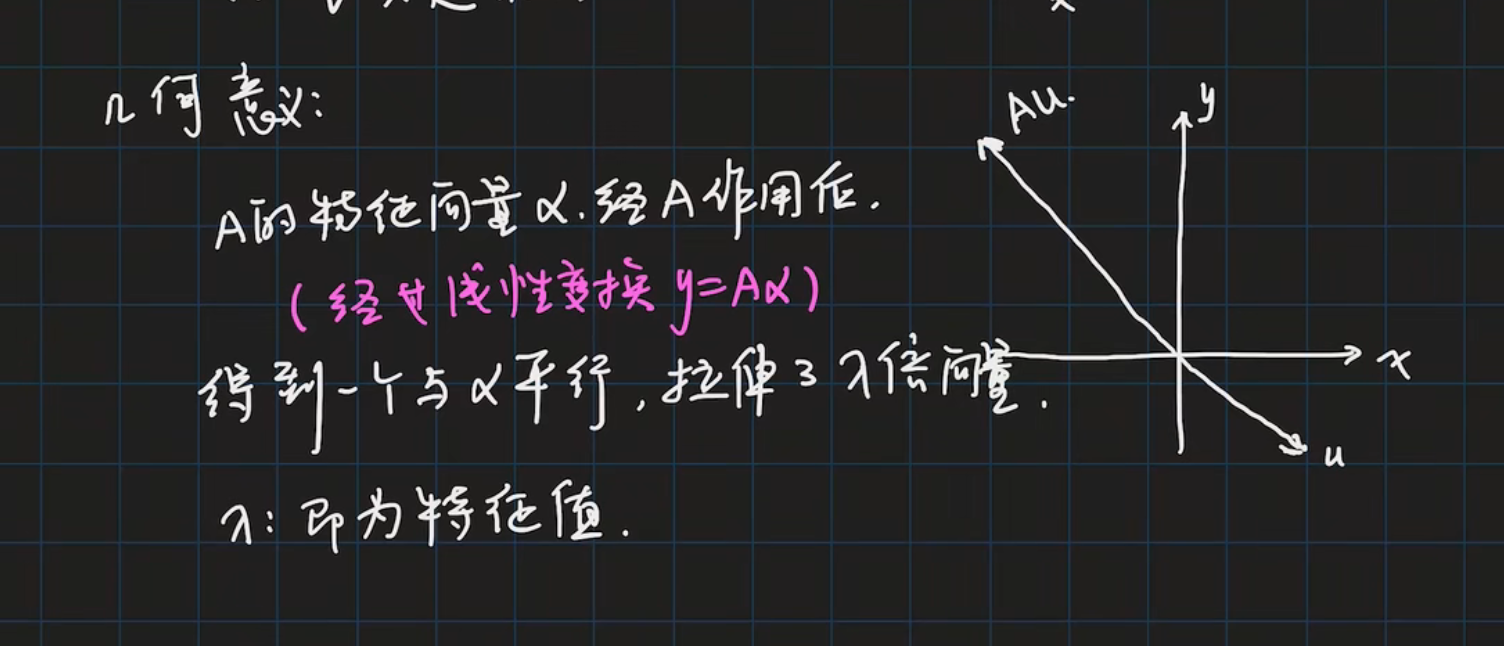 几何意义:
A的特征向量α.经A作用后.
(经由线性变换 y=Aα)
得到一个与α平行,拉伸了λ倍向量.
λ:即为特征值.
Au.
y
x
u